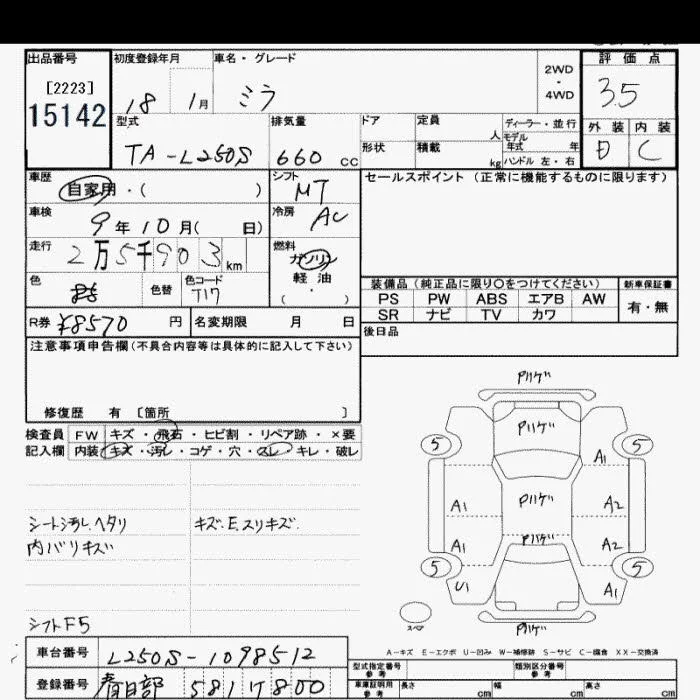 出品番号 初度登録年月 車名・グレード 2WD・4WD 評価点
[2223] 18 1月 ミラ 3.5
15142
型式 排気量 ドア 定員 人 ディーラー・並行 外装 内装
モデル年式 年
TA-L250S 660 cc 形状 積載 kg ハンドル 左・右 D C
車歴 自家用・( ) シフト MT セールスポイント(正常に機能するものに限ります)
車検 9年10月( 日) 冷房 AC
走行 2万5千903km 燃料 ガソリン
軽油
( ・ )
色 色替 色コード T17
装備品(純正品に限り○をつけてください) 新車保証書
PS PW ABS エアB AW 有・無
SR ナビ TV カワ
R券 ¥8570円 名変期限 月 日 後日品
注意事項申告欄(不具合内容等は具体的に記入して下さい)
修復歴 有 [箇所 ]
検査員 FW キズ・飛石・ヒビ割・リペア跡・×要
記入欄 内装 キズ・汚レ・コゲ・穴・スレ・キレ・破レ
シート汚レ、ヘタリ キズ、E、スリキズ、
内バリキズ
シフトF5
P
P
P
P
P
5 5
A1
A1 A2
A1 A2
5 5
U1 A1
スペア
A-キズ E-エクボ U-凹み W-補修跡 S-サビ C-腐食 XX-交換済
車台番号 L250S-1098512
型式指定番号 参考 類別区分番号 参考
登録番号 春日部 581 ツ 800
車庫証明用 参考 長さ cm 幅 cm 高さ cm